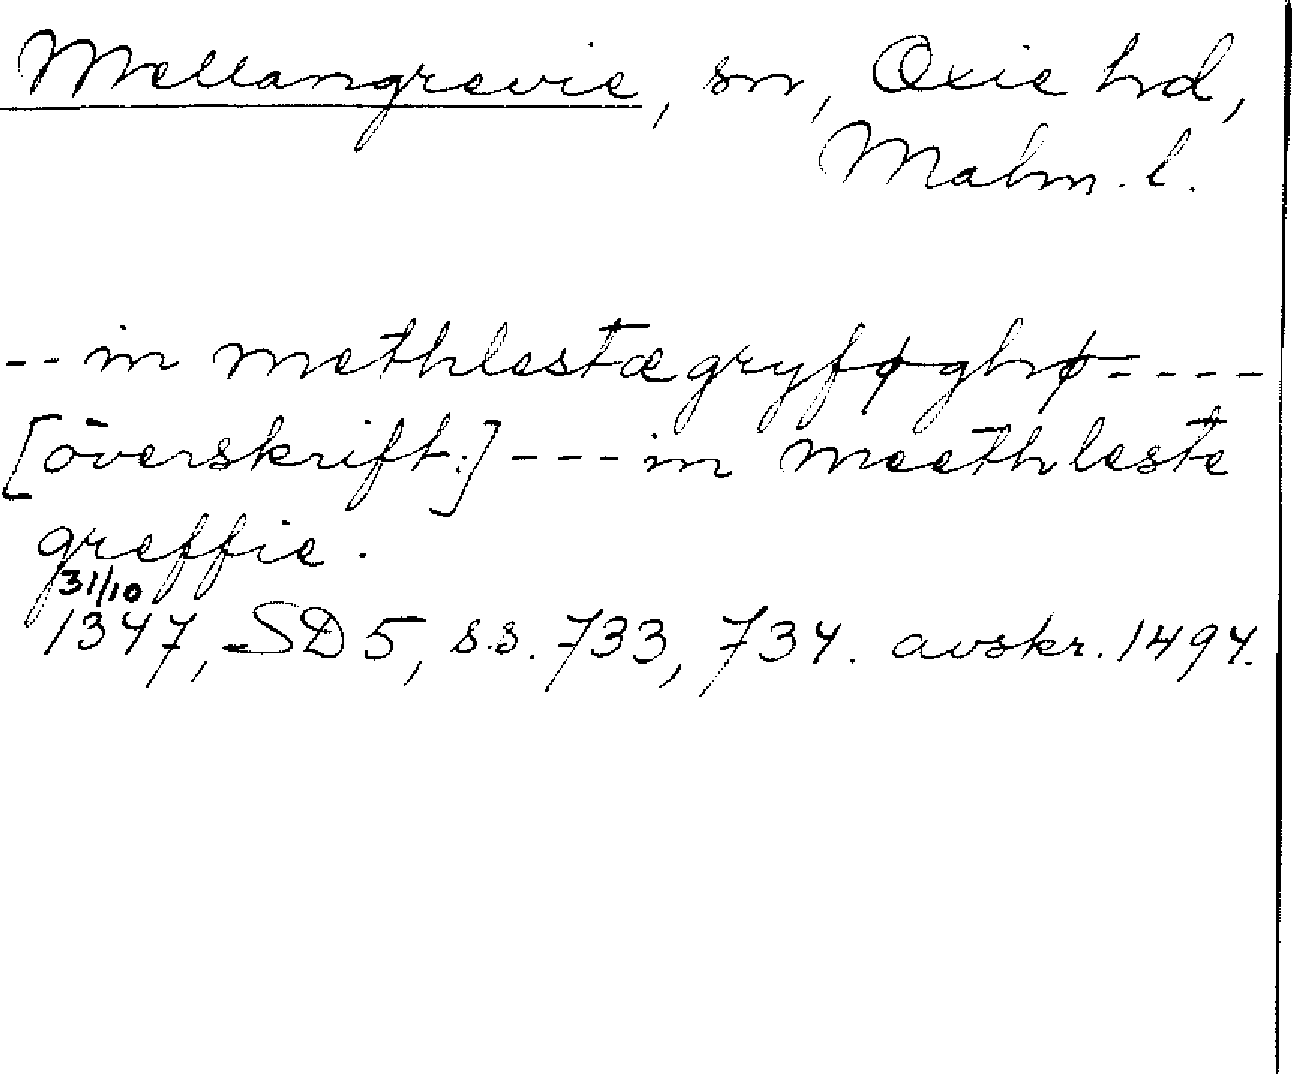 Mellangrevie, sn, Oxie hd,
Malm. l.
-- in methlestægryføghø----
[överskrift:] --- in meethleste
greffie.
31/10
1347, SD 5, s.s. 733, 734. avskr. 1494.